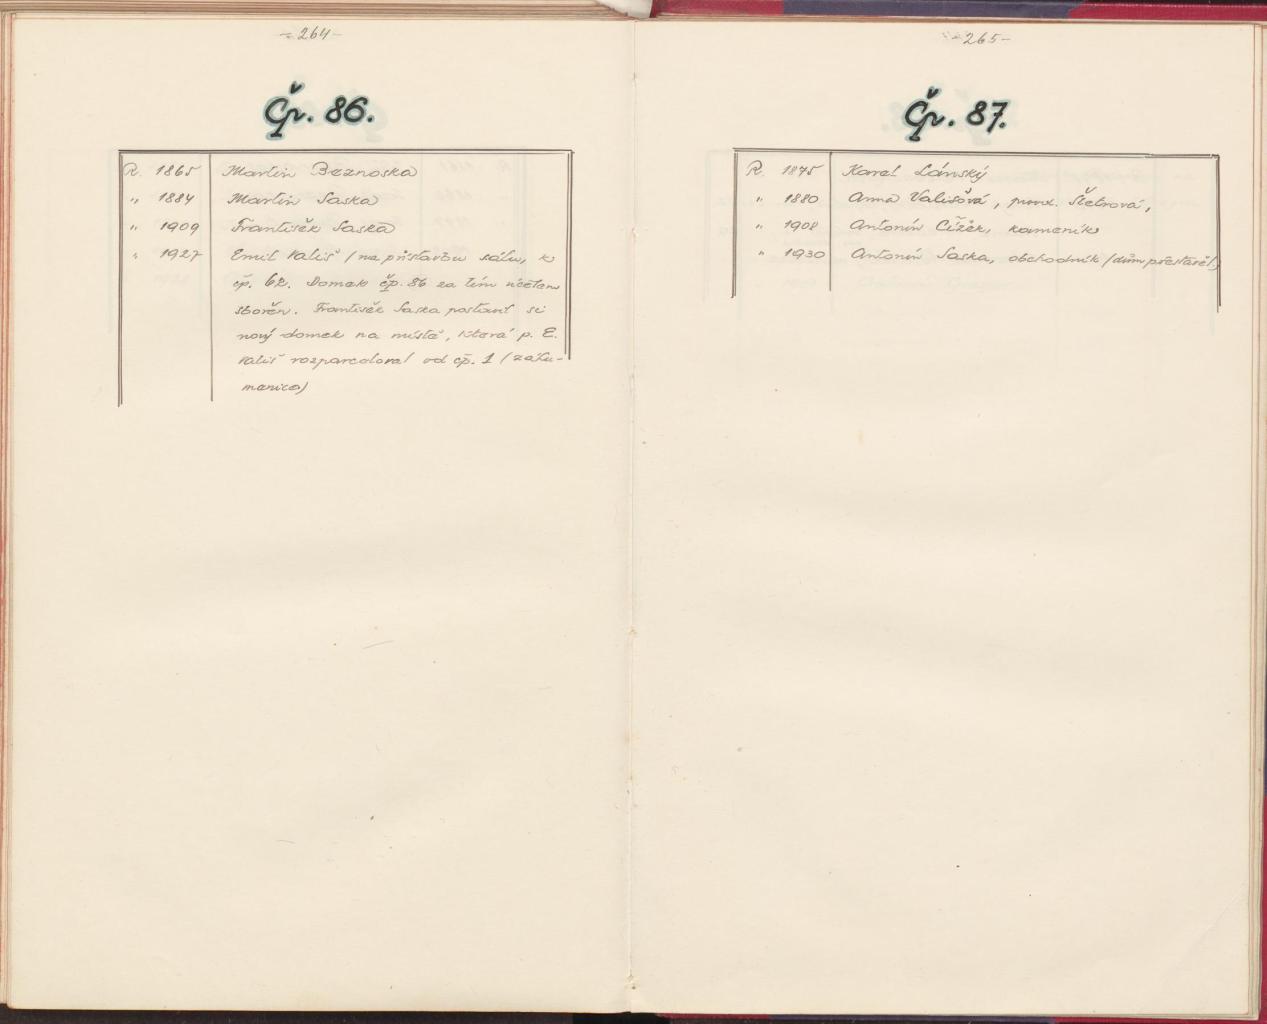 - 264 -
Čp. 86.
R. 1865 Martin Beznoska
" 1884 Martin Saska
" 1909 František Saska
" 1927 Emil Vališ (na přístavbu sálu, k
čp. 62. Domek čp. 86 za tím účelem
zbořen. František Saska postavil si
nový domek na místě, která p. E.
Vališ rozparceloval od čp. 1 (záhu-
menice)
- 265 -
Čp. 87.
R. 1875 Karel Lánský
" 1880 Anna Vališová, provd. Štetrová,
" 1908 Antonín Čížek, kameník
" 1930 Antonín Saska, obchodník (dům přestavěl)